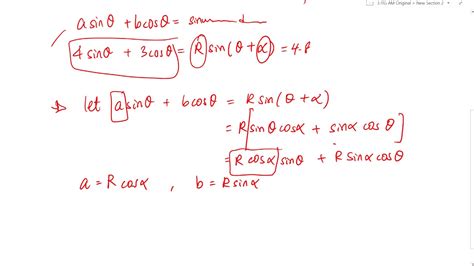 3:16 AM Original > New Section 2
a sinθ + b cosθ = sin
4 sinθ + 3 cosθ = R sin(θ + α) = 4.8
let a sinθ + b cosθ = R sin(θ + α)
= R[sinθ cosα + sinα cosθ]
= R cosα sinθ + R sinα cosθ
a = R cosα , b = R sinα